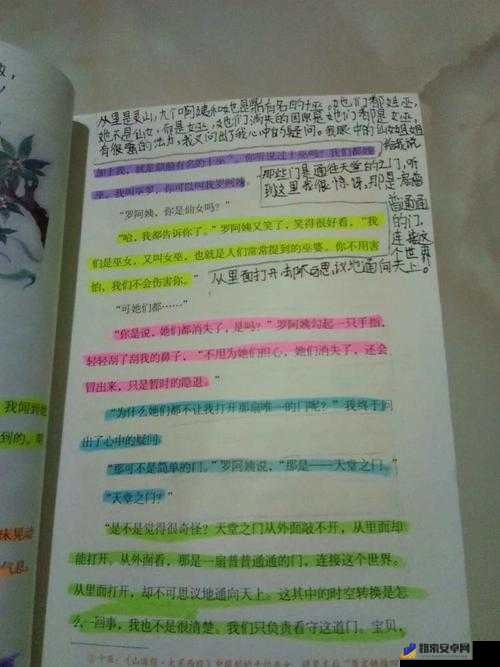 从里是灵山,九个阿姨和她是鼎鼎有名的十巫,她们都姓巫,
她不是仙女,而是女巫,她们消失的因原是她们都是女巫,
有很强的法力,我又问出了我心中的疑问。我眼中的仙女姐姐
给我说
那这门是通往天堂之门,听
到这里我很惊讶,那是扇普
普通通
的门,
连接这
个世界。
从里面打开却不可思议地通向天上。
加上我,就是鼎鼎有名的十巫*。你听说过十巫吗?我们都姓
巫,我叫巫罗,你可以叫我罗阿姨。”
“罗阿姨,你是仙女吗?”
“哈,我都告诉你了。”罗阿姨又笑了,笑得很好看,“我
们是巫女,又叫女巫,也就是人们常常提到的巫婆。你不用害
怕,我们不会伤害你。”
“可她们都……”
“你是说,她们都消失了,是吗?”罗阿姨勾起一只手指,
轻轻刮了刮我的鼻子,“不用为她们担心,她们消失了,还会
冒出来,只是暂时的隐退。”
“为什么她们都不让我打开那扇唯一的门呢?”我终于问
出了心中的疑问。
“那可不是简单的门。”罗阿姨说,“那是——天堂之门。”
“天堂之门?”
“是不是觉得很奇怪?天堂之门从外面敲不开,从里面却
能打开。从外面看,那是一扇普普通通的门,连接这个世界。
从里面打开,却不可思议地通向天上。这其中的时空转换是怎
么一回事,我也不是很清楚。我们只负责看守这道门。宝贝,
我闻到她
到的。
味晃动
气息
超京安卓网